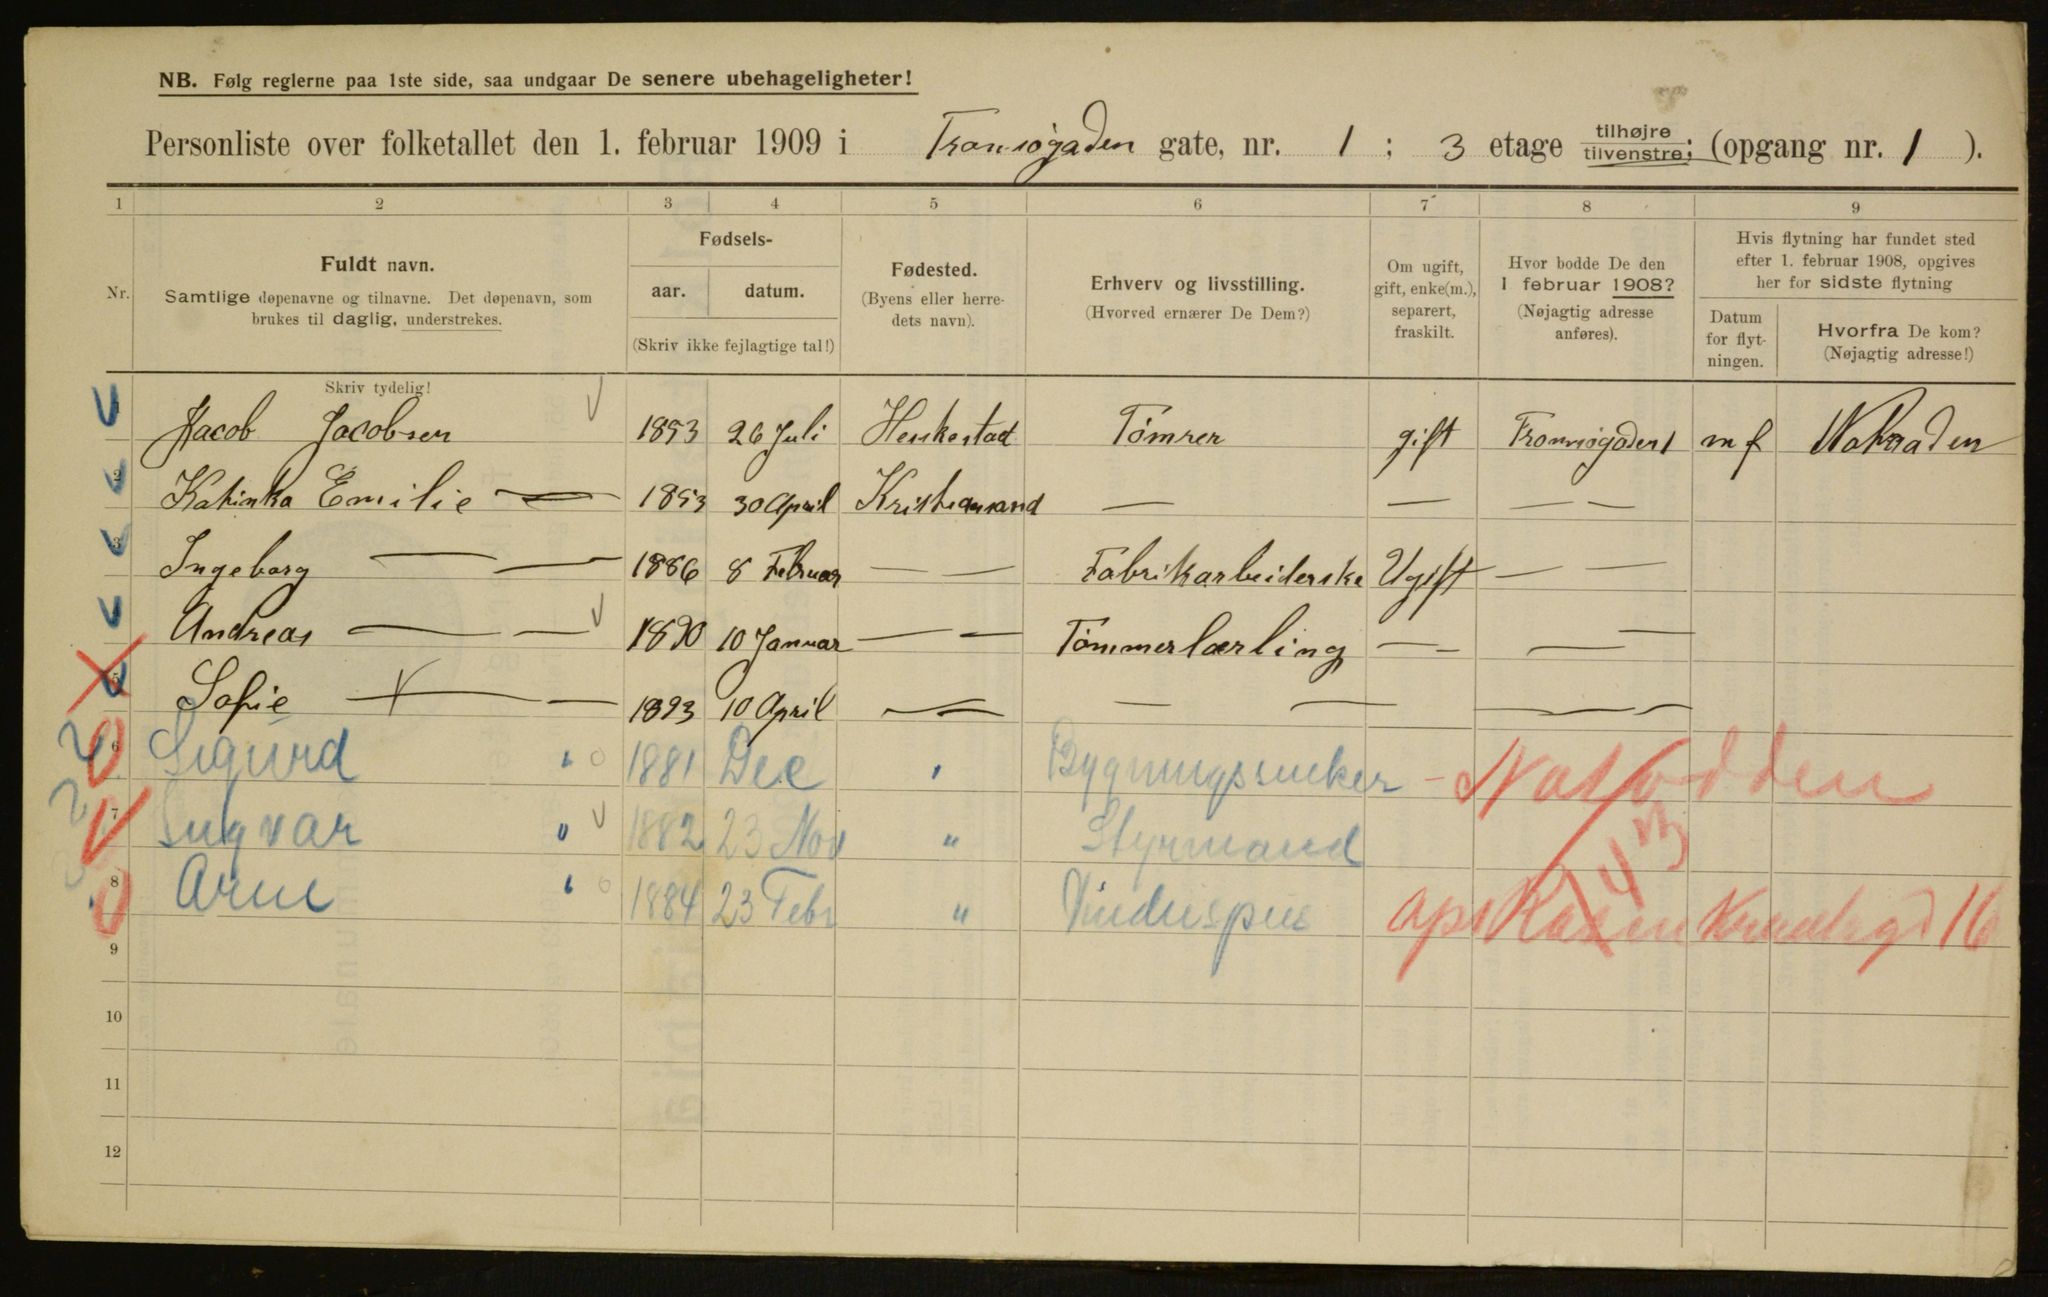 NB. Følg reglerne paa 1ste side, saa undgaar De senere ubehageligheter!
Personliste over folketallet den 1. februar 1909 i Tromsøgaden gate, nr. 1 ; 3 etage tilhøjre tilvenstre; (opgang nr. 1 ).
1 2 3 4 5 6 7 8 9
Nr.
Fuldt navn.
Samtlige døpenavne og tilnavne. Det døpenavn, som
brukes til daglig, understrekes.
Fødsels-
aar. datum.
(Skriv ikke fejlagtige tal!)
Fødested.
(Byens eller herre-
dets navn).
Erhverv og livsstilling.
(Hvorved ernærer De Dem?)
Om ugift,
gift, enke(m.),
separert,
fraskilt.
Hvor bodde De den
1 februar 1908?
(Nøjagtig adresse
anføres).
Hvis flytning har fundet sted
efter 1. februar 1908, opgives
her for sidste flytning
Datum
for flyt-
ningen.
Hvorfra De kom?
(Nøjagtig adresse!)
Skriv tydelig!
1 Jacob Jacobsen 1853 26 Juli Heskestad Tömrer gift Tromsøgaden 1 m f
2 Katinka Emilie — 1853 30 April Kristiansand — — — —
3 Ingeborg — — 1886 8 Februar — — Fabrikarbeiderske Ugift — —
4 Andreas — — 1890 10 Januar — — Tömmerlærling — — —
5 Sofie — — 1893 10 April — — — — — —
6 Sigurd " 1881 Dec " Bygningssneker - Notodden
7 Ingvar " 1882 23 Nov " Styrmand
8 Arne " 1884 23 Febr " Vinduspus 16
9
10
11
12